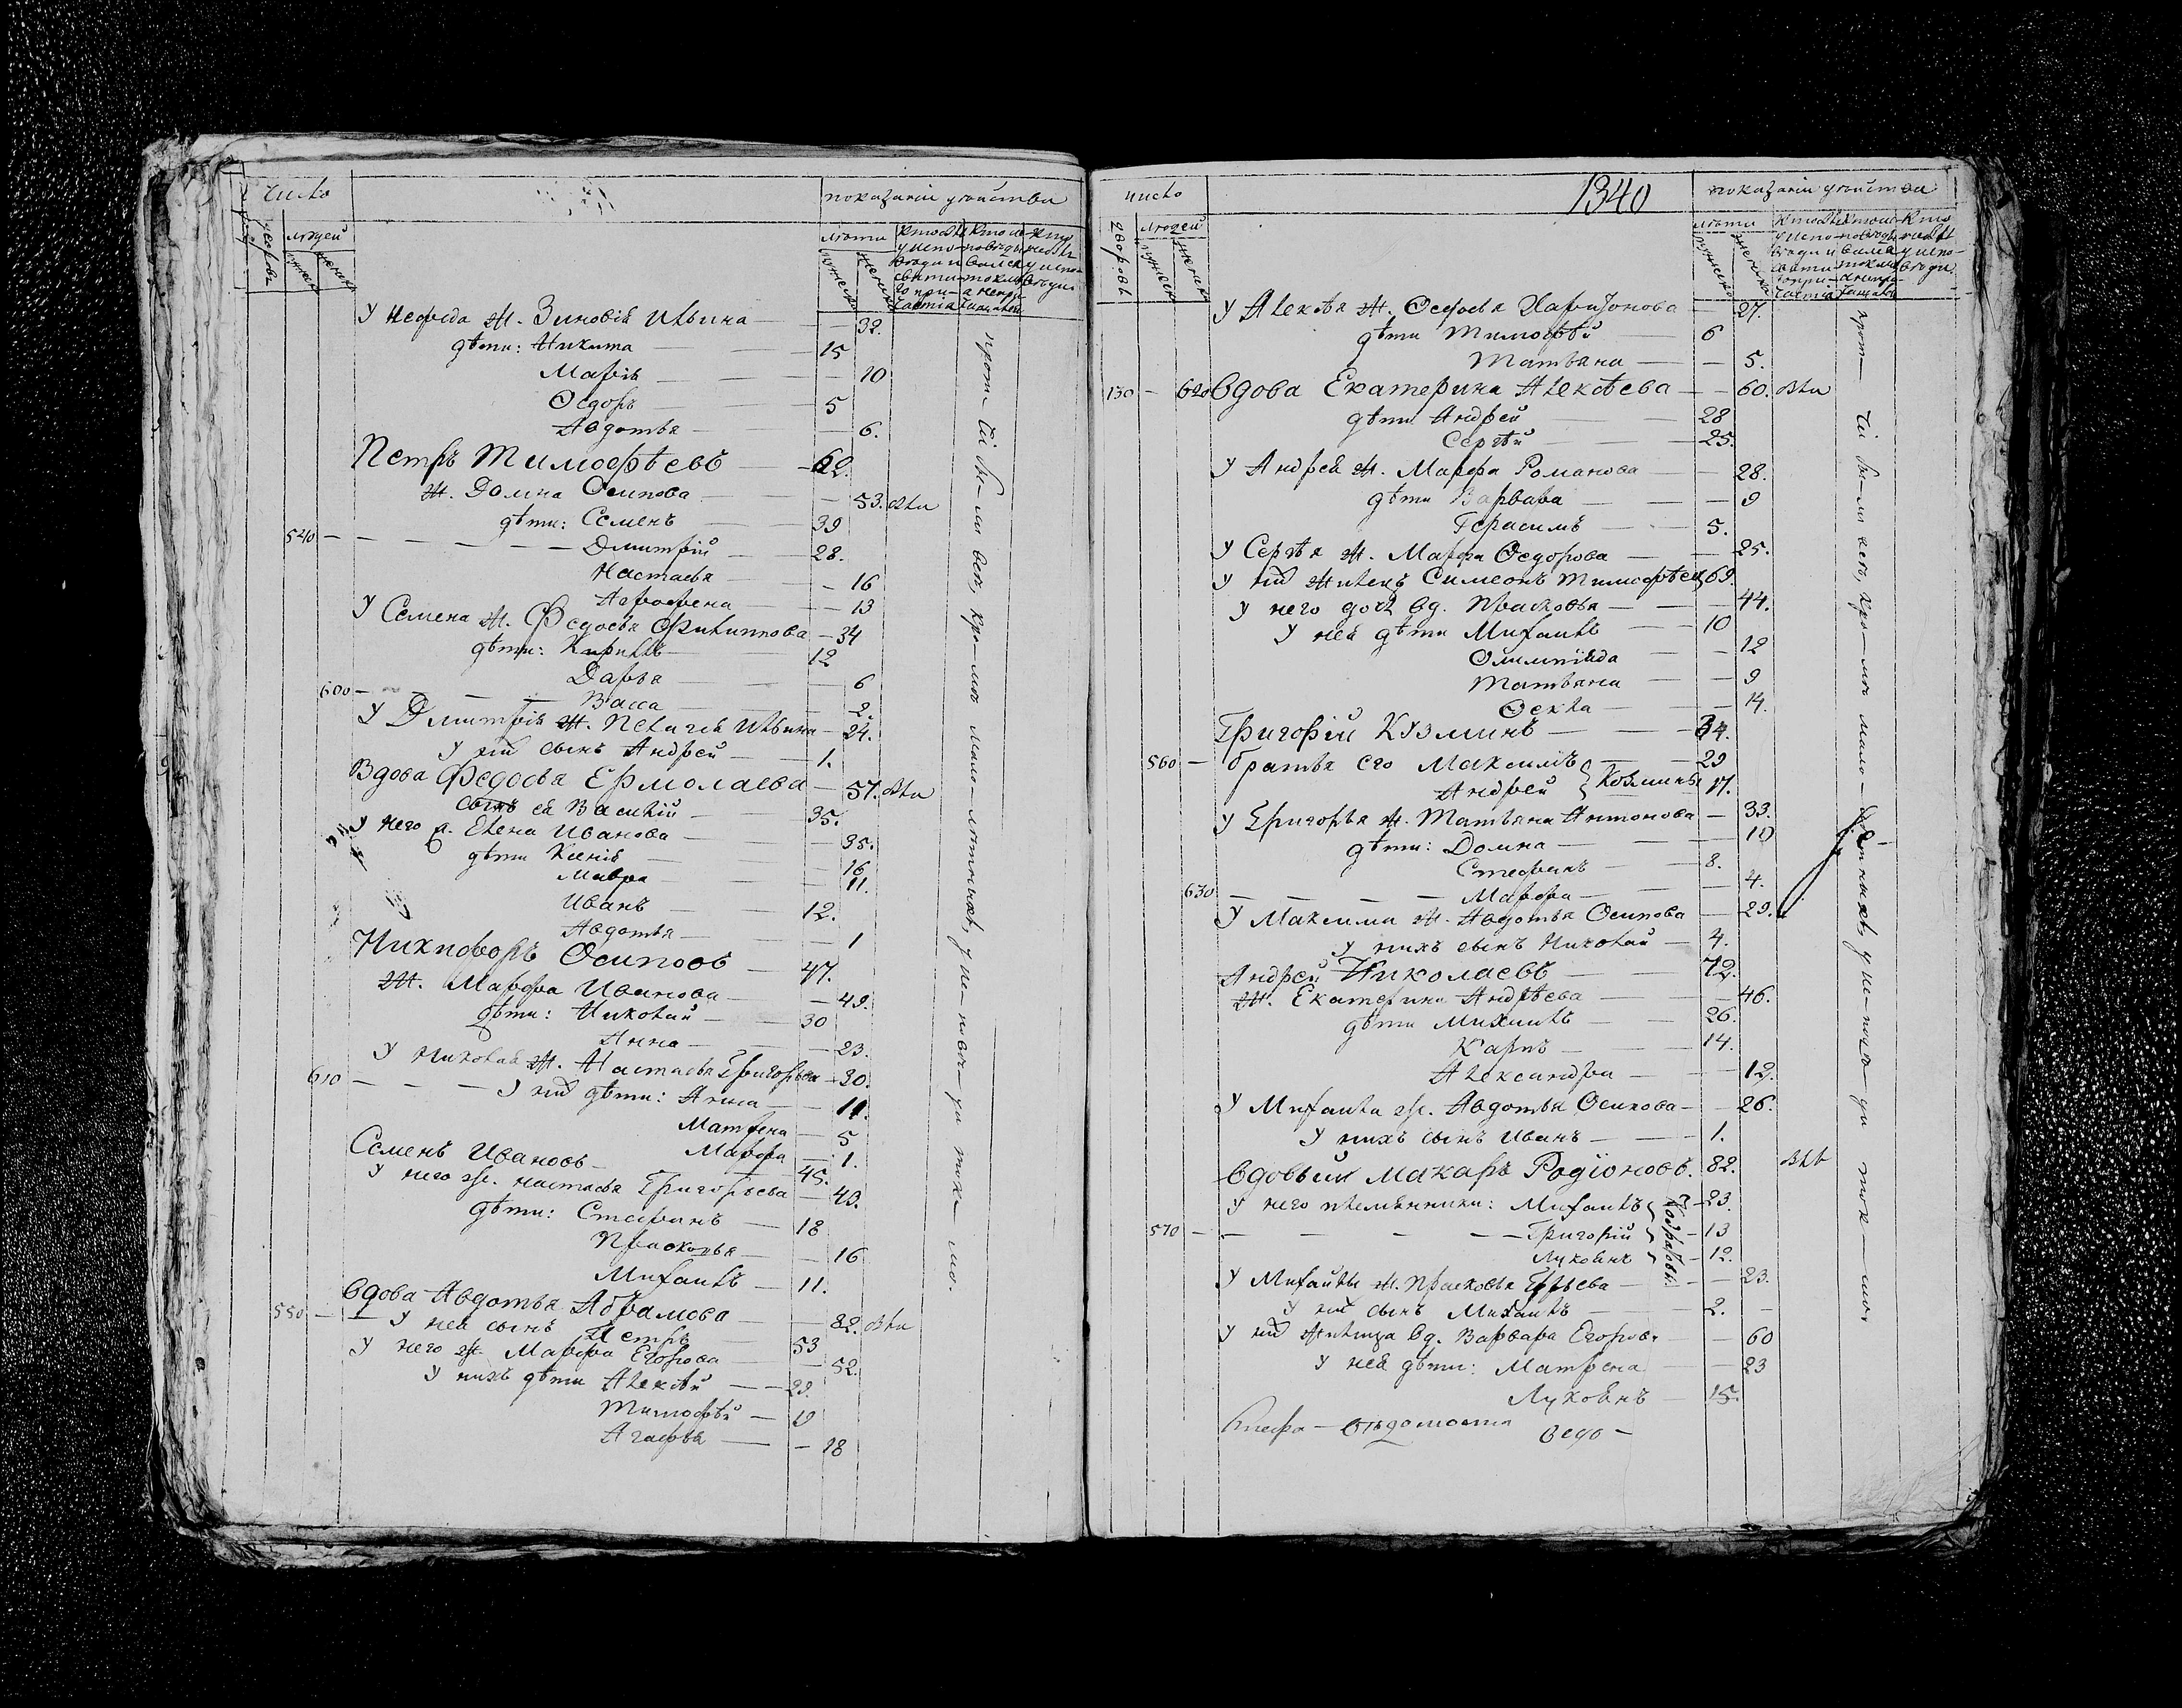 число
показаніи у коиства
дворовъ
людей
мужеск
женска
лѣта
мужеска
женска
У Нефеда ж. Зиновія Ильина — — 32.
дѣти: Никита — — 15
Марія — — 10
Ѳедоръ — 5
Авдотья — — 6.
Петръ Тимофѣевъ — 62.
ж. Домна Осипова — 53. были
дѣти: Семенъ — 39
540 — — — — — Дмитрій — 28.
Настасья — 16
Агрофена — — 13
У Семена ж. Федосья Филиппова — 34
дѣти: Кирилъ — 12
Дарья — — 6
600 — — — Васса — — 2.
У Дмитрія ж. Пелагея Ильина — 24.
у них сынъ Андрей — 1.
Вдова Федосья Ермолаева — 57. были
сынъ ея Василій — 35.
У него ж. Елена Иванова — 35.
дѣти Ксенія — 16
Мавра — — 11.
Иванъ — — 12.
Авдотья — — 1
Никифоръ Осиповъ — 47.
ж. Марфа Иванова — — 49.
дѣти: Николай — 30
Анна — — 23.
У Николая ж. Настасья Григорьева — 30.
610 — — — У них дѣти: Анна — — 11.
Матрена — 5
Марфа — 1.
Семенъ Ивановъ — 45.
У него ж. Настасья Григорьева — 43.
дѣти: Стефанъ — 18
Прасковья — — 16
Михаилъ — 11.
Вдова Авдотья Абрамова — 82. были
550 — У нея сынъ Петръ — 53
У него ж. Марфа Егорова — 52.
У нихъ дѣти Алексѣй — — 29.
Тимофѣй — 19
Агафья — — 18
число
1340
показаніи у коиства
дворовъ
людей
мужеск
женска
лѣта
мужеска
женска
У Алексѣя ж. Ѳедосья Харитонова — 27.
дѣти Тимофѣй — 6
Татьяна — — 5.
130 — 620 Вдова Екатерина Алексѣева — — 60. были
дѣти Андрей — 28
Сергѣй — — 25.
У Андрея ж. Марфа Романова — — 28.
дѣти Варвара — — 9
Герасимъ — — 5.
У Сергѣя ж. Марфа Ѳедорова — — 25.
У них жилецъ Симеонъ Тимофѣевъ 69.
У него дочь вд. Прасковья — — 44.
У нея дѣти Михаилъ — 10
Олимпіада — — 12
Татьяна — — 9
Ѳекла — — 14.
Григорій Кузминъ — — 34.
560 — братья его Максимъ — — 29
Андрей } Козмины 17.
У Григорья ж. Татьяна Антонова — 33.
дѣти: Домна — — 10
Стефанъ — 8.
630 — — — — Марфа — — 4.
У Максима ж. Авдотья Осипова — 29.
У нихъ сынъ Николай — 4.
Андрей Николаевъ — 72.
ж. Екатерина Андрѣева — — 46.
дѣти Михаилъ — 26.
Карпъ — 14.
Александра — — 12.
У Михаила ж. Авдотья Осипова — — 26.
У нихъ сынъ Иванъ — — 1.
Вдовый Макаръ Родіоновъ. 82. былъ
У него племянники: Михаилъ — 23.
570 — — — — — Григорій — 13
Лукоянъ — 12.
У Михайлы ж. Прасковья — — 23.
У них сынъ Михаилъ — 2.
У них жилица вд. Варвара Егоров. — 60
У нея дѣти: Матрена — — 23
Лукоянъ — 15.